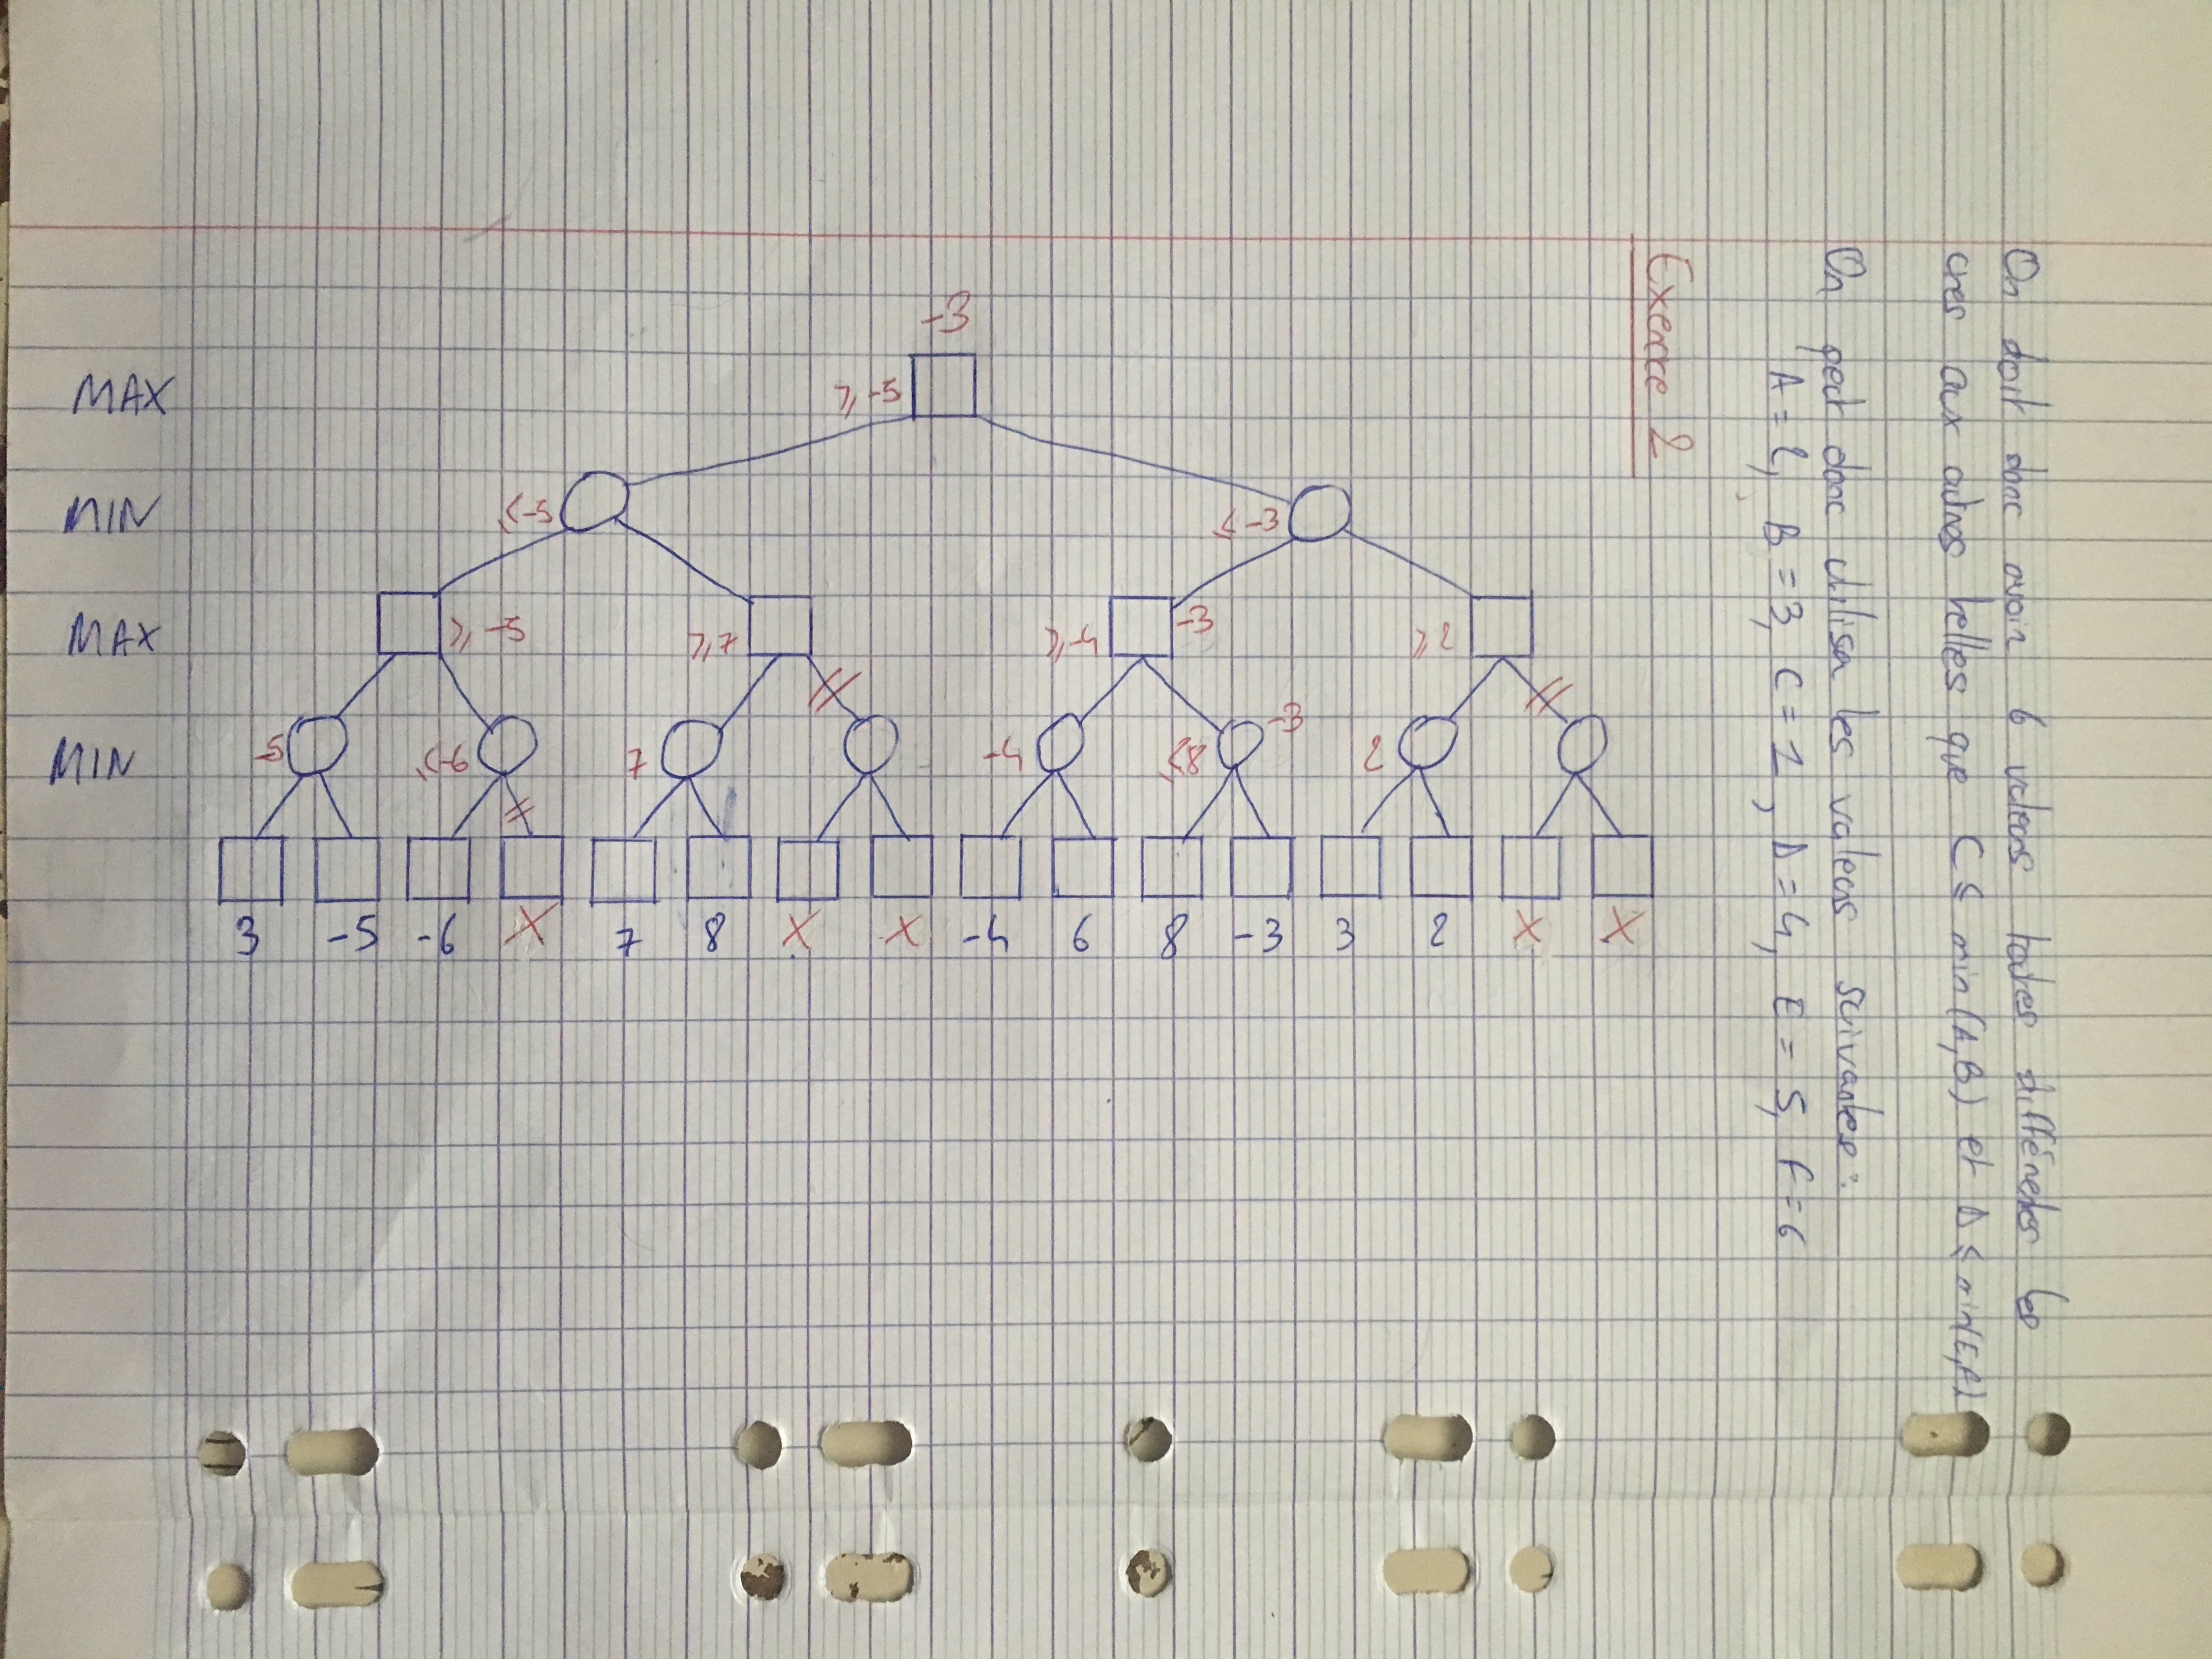 On doit donc avoir 6 valeurs toutes différentes les
unes aux autres telles que C ≤ min(A,B) et D ≤ min(E,F)
On peut donc utiliser les valeurs suivantes :
A = 2, B = 3, C = 1, D = 4, E = 5, F = 6
Exercice 2
-3
MAX ≥ -5
MIN ≤ -5 ≤ -3
MAX ≥ -5 ≥ 7 ≥ -4 -3 ≥ 2
MIN -5 ≤ -6 7 -4 ≤ 8 -3 2
3 -5 -6 X 7 8 X X -4 6 8 -3 3 2 X X